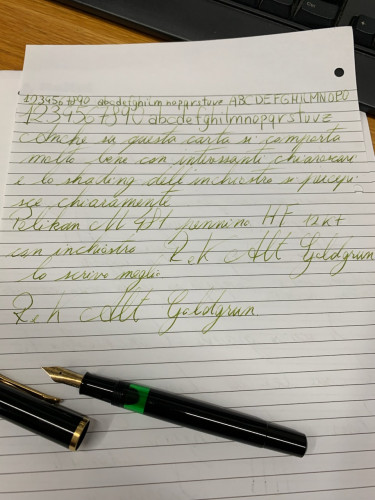 1234567890 abcdefghilmnopqrstuvz ABCDEFGHILMNOPQ
1234567890 abcdefghilmnopqrstuvz
Anche su questa carta si comporta
molto bene con interessanti chiaroscuri
e lo shading dell'inchiostro si percepi
sce chiaramente
Pelikan M 481 pennino HF 12KT
con inchiostro R&K Alt Goldgrun
lo scrivo meglio
R&K Alt Goldgrun